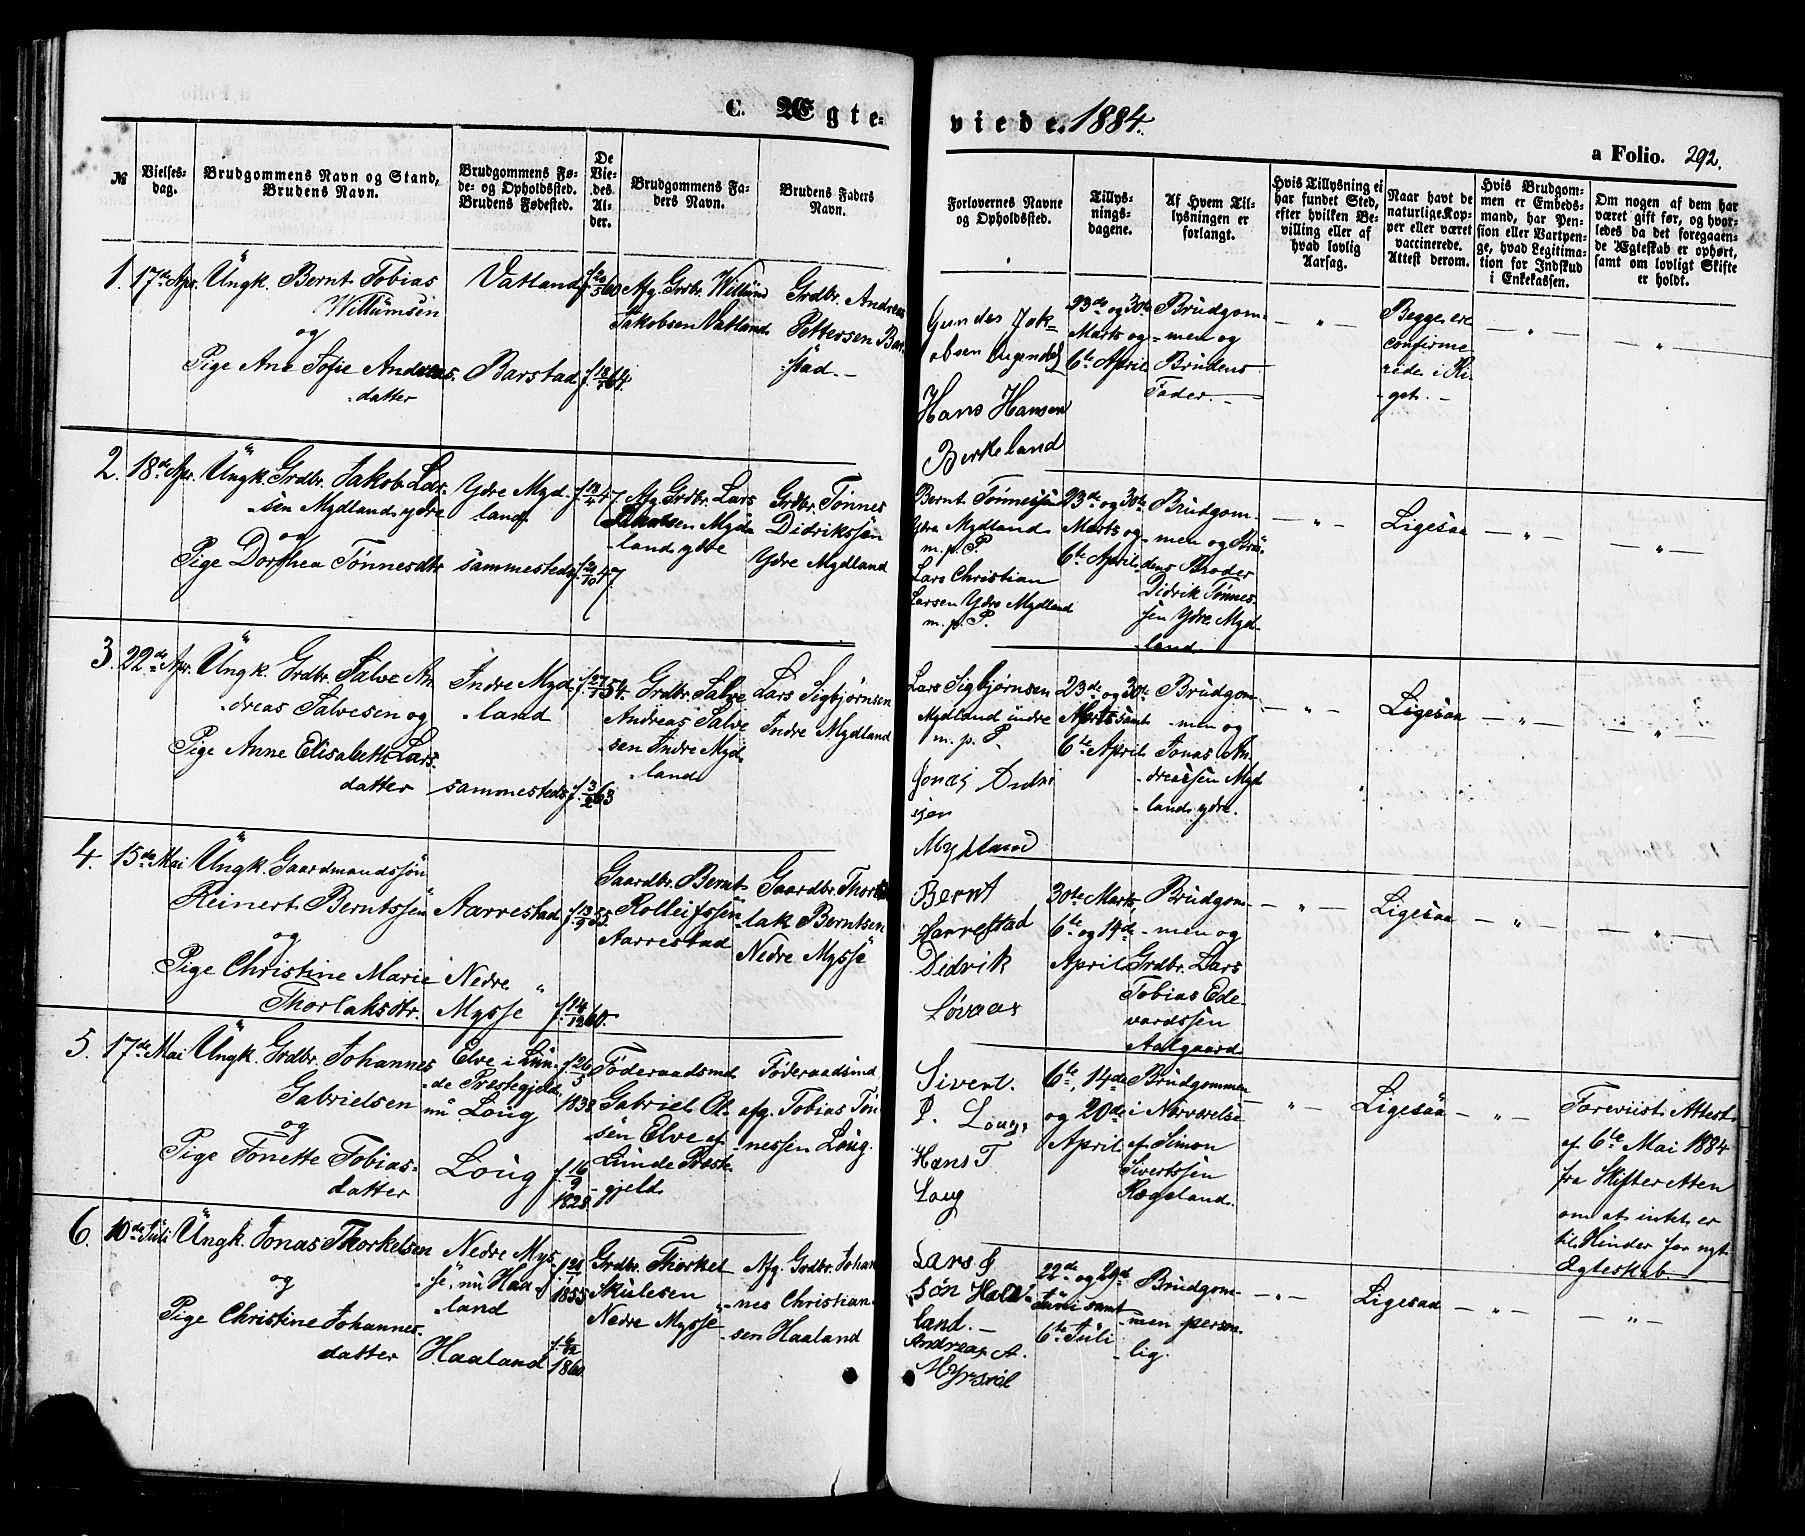 C. Ægte-
viede. 1884.
a Folio. 292.
№
Vielses-
dag.
Brudgommens Navn og Stand,
Brudens Navn.
Brudgommens Fø-
de- og Opholdssted.
Brudens Fødested.
De
Vie-
des
Al-
der.
Brudgommens Fa-
ders Navn.
Brudens Faders
Navn.
Forlovernes Navne
og Opholdssted.
Tillys-
nings-
dagene.
Af Hvem Til-
lysningen er
forlangt.
Hvis Tillysning ei
har fundet Sted,
efter hvilken Be-
villing eller af
hvad lovlig
Aarsag.
Naar havt de
naturlige Kop-
per eller været
vaccinerede.
Attest derom.
Hvis Brudgom-
men er Embeds-
mand, har Pen-
sion eller Vartpen-
ge, hvad Legitima-
tion for Indskud
i Enkekassen.
Om nogen af dem har
været gift før, og hvor-
ledes da det foregaaen-
de Ægteskab er ophørt,
samt om lovligt Skifte
er holdt.
1. 17de Apr.
Ungk. Bernt Tobias
Willumsen
og
Pige Ane Sofie Andreas-
datter
Vatland
Barstad
Afg. Grdbr. Willum
Jakobsen Vatland
Grdbr. Andreas
Pettersen Bar-
stad.
Gunder Jak-
obsen
Hans Hansen
Berkeland
23de og 30de
Marts og
6te April
Brudgom-
men og
Brudens
Fader.
Begge ere
confirme-
rede i Ri-
get.
2. 18de Apr.
Ungk. Grdbr. Jakob Lar-
sen Mydland ydre
og
Pige Dorthea Tønnesdtr.
Ydre Myd-
land
sammesteds
f. 18/4 47
47.
Afg. Grdbr. Lars
Jakobsen Myd-
land ydre
Grdbr. Tønnes
Didriksen
Ydre Mydland
Bernt Tønnessen
Ydre Mydland
m. p. P.
Lars Christian
Larsen Ydre Mydland
m. p. P.
23de og 30te
Marts og
6te April
Brudgom-
men og Bru-
dens Broder
Didrik Tønnes-
sen Ydre Myd-
land.
Ligesaa
3. 22de Apr.
Ungk. Grdbr. Salve An-
dreas Salvesen og
Pige Anne Elisabeth Lars-
datter
Indre Myd-
land
sammesteds
f. 27/1 54.
f. 3/2 63
Grdbr. Salve
Andreas Salve-
sen Indre Myd-
land
Lars Sigbjørnsen
Indre Mydland
Lars Sigbjørnsen
Mydland indre
m. p. P.
Jonas
Mydland
23de og 30te
Marts samt
6te April
Brudgom-
men og
Jonas An-
dreassen Myd-
land ydre.
Ligesaa
4. 15de Mai
Ungk. Gaardmandssøn
Reinert Berntssen
og
Pige Christine Marie
Thorlaksdtr.
Aarrestad
Nedre
Mysse
f. 13/9 55.
f. 14/12 60.
Gaardbr. Bernt
Rolleifssen
Aarrestad
Gaardbr. Thor-
lak Berntsen
Nedre Mysse
Bernt
Harrestad
Didrik
Løvaas
30te Marts
6te og 14de
April
Brudgom-
men og
Grdbr. Lars
Tobias Ede-
vardssen
Aalgaard.
Ligesaa
5. 17de Mai
Ungk. Grdbr. Johannes
Gabrielsen
og
Pige Tonette Tobias-
datter
Elve i Lun-
de Præstegjeld
nu Loug
Loug
f. 26/5
1838
f. 16/9
1828
Føderaadsmd
Gabriel Ol-
sen Elve af
Lunde Præste-
gjeld.
Føderaadsmd
afg. Tobias Tøn-
nessen Loug.
Sivert
P. Loug
Hans T
Loug
6te, 14de
og 20de
April
Brudgommen
i Nærværelse
af Simon
Sivertssen
Rægeland.
Ligesaa
Foreviist Attest
af 6te Mai 1884
fra Skifteretten
om at intet er
til Hinder for nyt
Ægteskab.
6. 10de Juli
Ungk. Jonas Thorkelsen
og
Pige Christine Johannes-
datter
Nedre Mys-
se, nu Haa-
land
Haaland
1855
f. 6/12
1860.
Grdbr. Thorkel
Skulesen
Nedre Mysse
Afg. Grdbr. Johan-
nes Christian-
sen Haaland
Lars
Søn Haa-
land.
Andreas A.
Myrstøl
22de og 29de
Juni samt
6te Juli
Brudgom-
men person-
lig.
Ligesaa